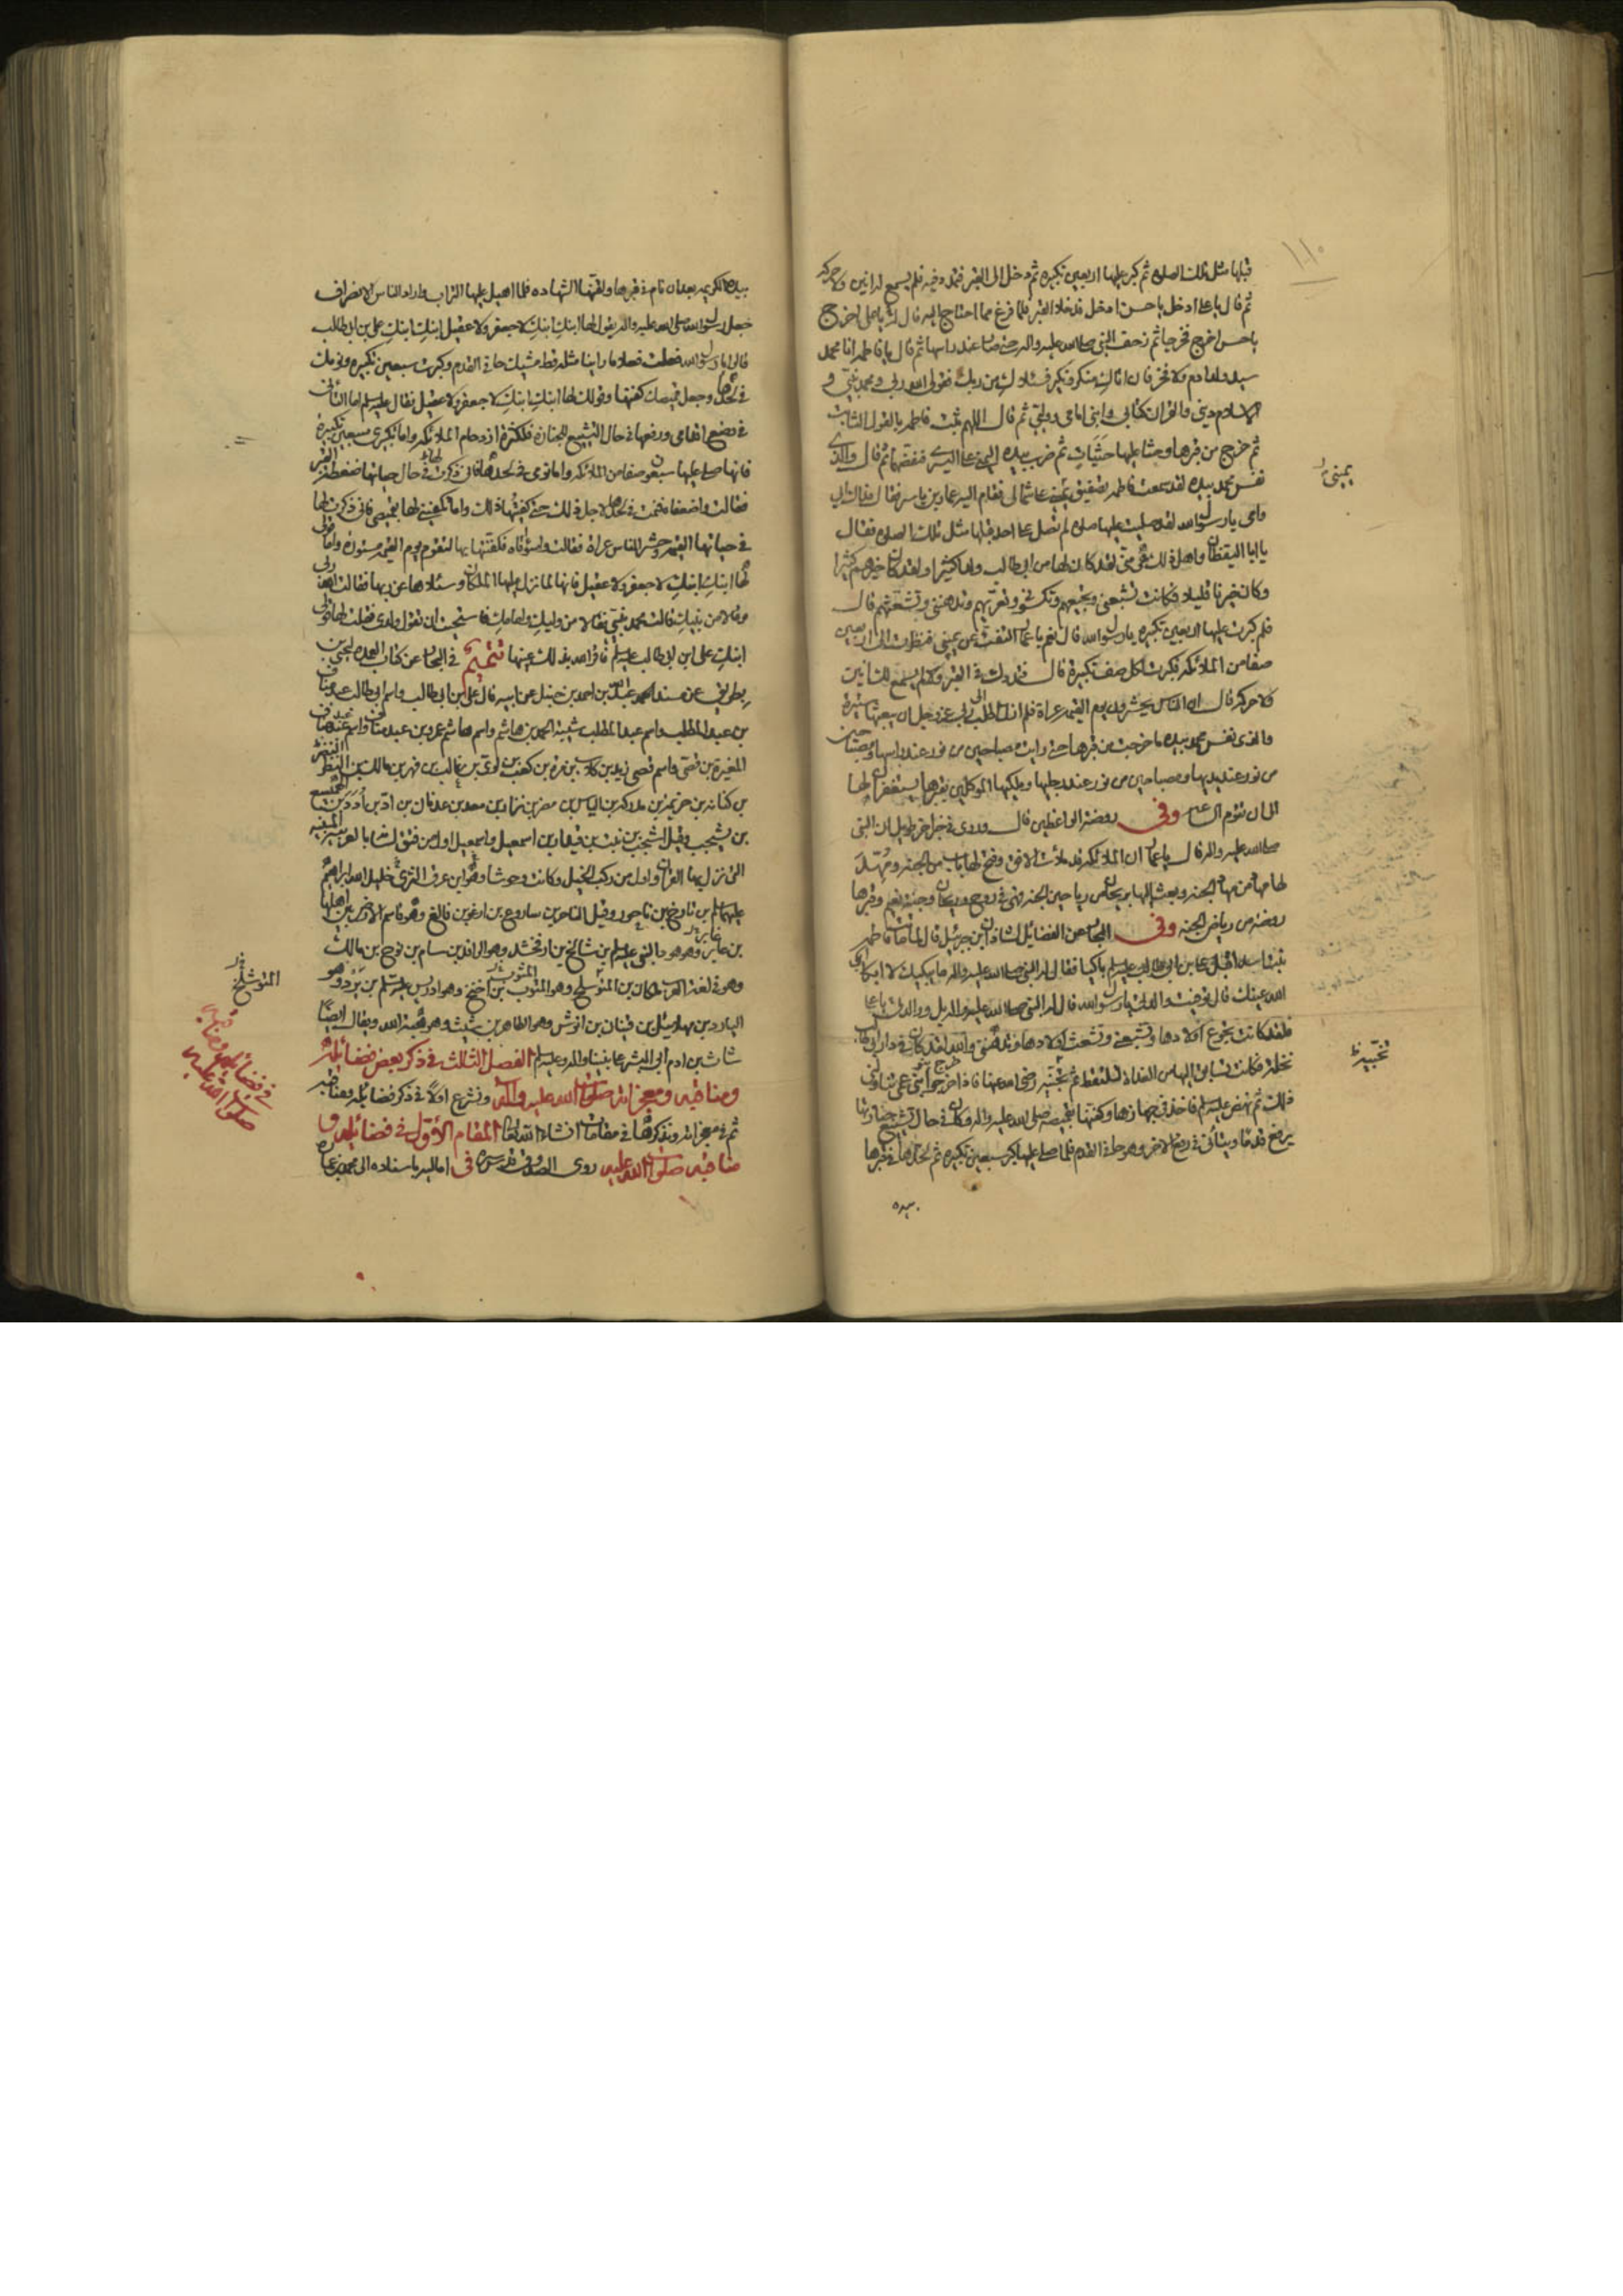 ١١٠
قبلها مثل تلك الصلوة ثم كبر عليها اربعين تكبيرة ثم دخل الى القبر فتمدد فيه فلم يسمع له انين ولا حركة
ثم قال يا علي ادخل يا حسن ادخل فدخلا القبر فلما فرغ مما احتاج اليه قال له يا علي اخرج
يا حسن اخرج فخرجا ثم زحف النبي صلى الله عليه واله حتى صار عند راسها ثم قال يا فاطمة انا محمد
سيد ولد ادم ولا فخر فان اتاك منكر ونكير فسئلاك من ربك فقولي الله ربي ومحمد نبيي و
الاسلام ديني والقران كتابي وابني امامي ووليي ثم قال اللهم ثبت فاطمة بالقول الثابت
ثم خرج من قبرها وحثا عليها حثيات ثم ضرب بيده اليمنى على اليسرى فنفضهما ثم قال والذي
نفس محمد بيده لقد سمعت فاطمة تصفيق يميني على شمالي فقام اليه عمار بن ياسر فقال فداك ابي
وامي يا رسول الله لقد صليت عليها صلوة لم تصل على احد قبلها مثل تلك الصلوة فقال
يا ابا اليقظان واهل ذلك هي مني لقد كان لها من ابي طالب ولد كثير ولقد كان خيرهم كثيرا
وكان خيرنا قليلا فكانت تشبعني وتجيعهم وتكسوني وتعريهم وتدهنني وتشعثهم قال
فلم كبرت عليها اربعين تكبيرة يا رسول الله قال نعم يا عمار التفت عن يميني فنظرت الى اربعين
صفا من الملائكة فكبرت لكل صف تكبيرة قال فتمددك في القبر ولم يسمع لك انين
ولا حركة قال ان الناس يحشرون يوم القيمة عراة فلم ازل اطلب الى ربي عز وجل ان يبعثها ستيرة
والذي نفس محمد بيده ما خرجت من قبرها حتى رايت مصباحين من نور عند راسها ومصباحين
من نور عند يديها ومصباحين من نور عند رجليها وملكيها الموكلين بقبرها يستغفران لها
الى ان تقوم الساعة وفي روضة الواعظين قال وروي في خبر اخر طويل ان النبي
صلى الله عليه واله قال يا عمار ان الملائكة قد ملأت الافق وفتح لها باب من الجنة ومهد
لها مهاد من مهاد الجنة وبعث اليها بريحان من رياحين الجنة فهي في روح وريحان وجنة نعيم وقبرها
روضة من رياض الجنة وفي البحار عن الفضايل لشاذان بن جبرئيل قال لما ماتت فاطمة
بنت اسد اقبل علي بن ابي طالب عليه السلم باكيا فقال له النبي صلى الله عليه واله ما يبكيك لا ابكى
الله عينك قال توفيت والدتي يا رسول الله قال له النبي صلى الله عليه واله بل ووالدتي يا علي
فلقد كانت تجوع اولادها وتشبعني وتشعث اولادها وتدهنني والله لقد كان في دار ابي طالب
نخلة فكانت تسابق اليها من الغداة لتلتقط ثم تجنيه رضي الله عنها فاذا خرج بنو عمي تناولني
ذلك ثم نهض عليه السلم فاخذ في جهازها وكفنها بقميصه صلى الله عليه واله وكان في حال تشييع جنازتها
يرفع قدما ويتأنى في رفع الاخر وهو حافي القدم فلما صلى عليها كبر سبعين تكبيرة ثم لحدها في قبرها
بيده
بيده الكريمة بعد ان نام في قبرها ولقنها الشهادة فلما اهيل عليها التراب واراد الناس الانصراف
جعل رسول الله صلى الله عليه واله يقول لها ابنك ابنك لا جعفر ولا عقيل ابنك ابنك علي بن ابي طالب
قالوا يا رسول الله فعلت فعلا ما راينا مثله قط مشيك حافي القدم وكبرت سبعين تكبيرة ونومك
في لحدها وجعل قميصك كفنها وقولك لها ابنك ابنك لا جعفر ولا عقيل فقال عليه السلم اما التأني
في وضع اقدامي ورفعها في حال التشييع للجنازة فلكثرة ازدحام الملائكة واما تكبيري سبعين تكبيرة
فانها صلى عليها سبعون صفا من الملائكة واما نومي في لحدها فاني ذكرت لها في حال حياتها ضغطة القبر
فقالت واضعفاه فنمت في لحدها لاجل ذلك حتى كفيتها ذلك واما تكفيني لها بقميصي فاني ذكرت لها
في حياتها القيمة وحشر الناس عراة فقالت واسوأتاه فكفنتها بها لتقوم يوم القيمة مستورة واما قولي
لها ابنك ابنك لا جعفر ولا عقيل فانها لما نزل عليها الملكان وسئلاها عن ربها فقالت الله ربي
وقالا من نبيك قالت محمد نبيي فقالا من وليك وامامك فاستحيت ان تقول ولدي فقلت لها قولي
ابنك علي ابن ابي طالب عليه السلم فاقر الله بذلك عينها تتميم في البحار عن كتاب العمدة ليحيى بن
بطريق عن مسند احمد عبد الله بن احمد بن حنبل عن ابيه قال علي بن ابي طالب واسم ابي طالب عبد مناف
بن عبد المطلب واسم عبد المطلب شيبة الحمد بن هاشم واسم هاشم عمرو بن عبد مناف واسم عبد مناف
المغيرة بن قصي واسم قصي زيد بن كلاب بن مرة بن كعب بن لوي بن غالب بن فهر بن مالك بن النضر
بن كنانة بن خزيمة بن مدركة بن الياس بن مضر بن نزار بن معد بن عدنان بن اد بن ادد بن
بن يشجب وقيل اشجب بن نبت بن قيدار بن اسمعيل واسمعيل اول من فتق لسانا بالعربية
التي نزل بها القران واول من ركب الخيل وكانت وحوشا وهو ابن عرق الثرى خليل الله ابراهيم
عليهما السلم بن تارخ بن ناحور وقيل الناحر بن ساروع بن ارغو بن فالغ وهو قاسم الارض بين اهلها
بن عابر وهو هود النبي عليه السلم بن شالخ بن ارفخشد وهو الرافد بن سام بن نوح بن مالك
وهو في لغة العرب ملكان بن المتوشلخ وهو المثوب بن اخنخ وهو ادريس عليه السلم بن يرد وهو
اليارد بن مهلائيل بن قينان بن انوش وهو الطاهر بن شيث وهو هبة الله ويقال ايضا
شاث بن ادم ابي البشر على نبينا واله وعليه السلم الفصل الثالث في ذكر بعض فضائله
ومناقبه ومعجزاته صلوات الله عليه واله ونشرع اولا في ذكر فضائله ومناقبه
ثم في معجزاته ونذكرها في مقامات انشاء الله تعالى المقام الاول في فضائله و
مناقبه صلوات الله عليه روى الصدوق قدس سره في اماليه باسناده الى محمد بن عمارة
يميني
المتوشلخ
في فضائله ومناقبه
صلوات الله عليه